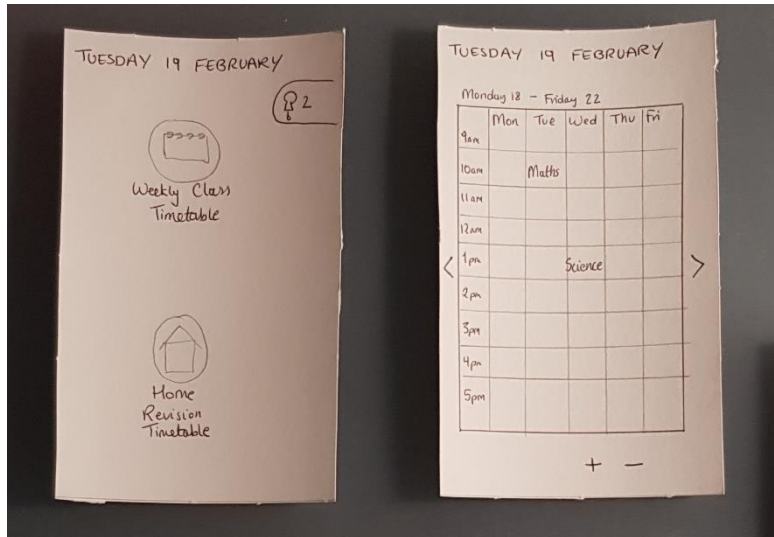 TUESDAY 19 FEBRUARY
2
Weekly Class
Timetable
Home
Revision
Timetable
TUESDAY 19 FEBRUARY
Monday 18 - Friday 22
Mon Tue Wed Thu Fri
9am
10am Maths
11am
12am
< 1pm Science >
2pm
3pm
4pm
5pm
+ -